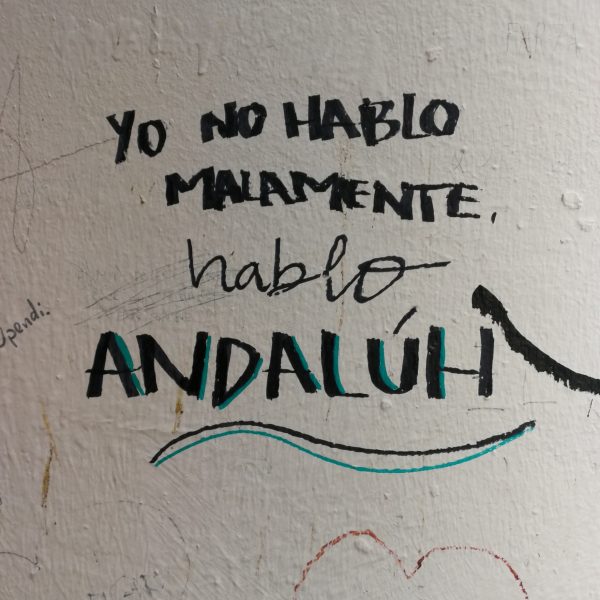 YO NO HABLO
MALAMENTE,
hablo
ANDALÚH